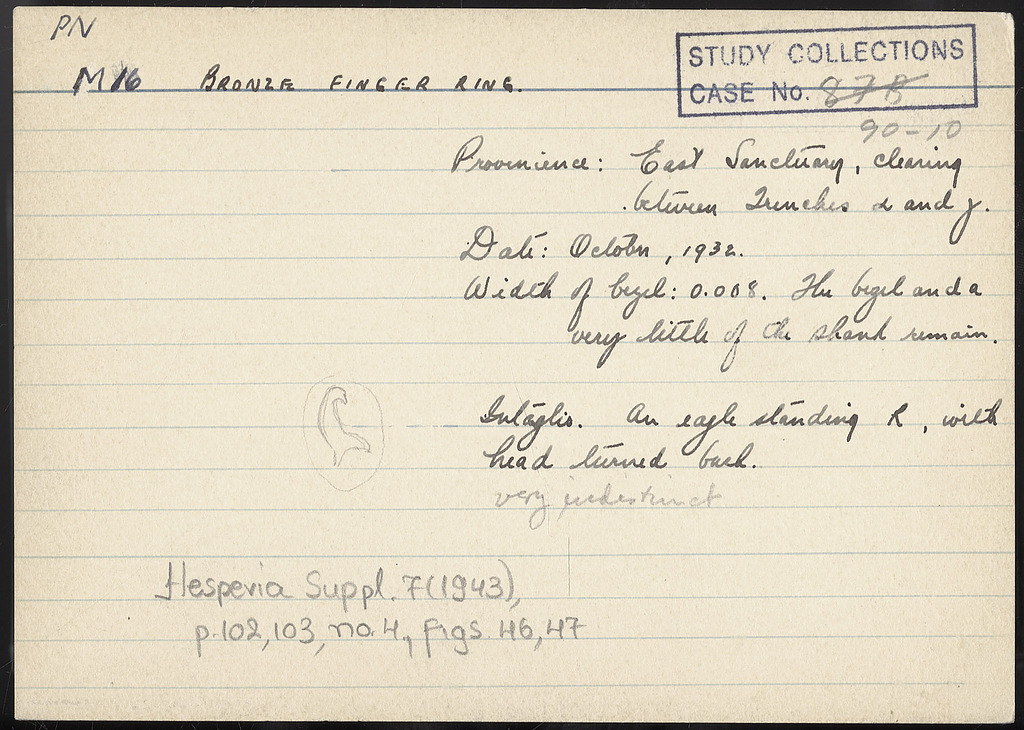 PN
M 16 BRONZE FINGER RING.
STUDY COLLECTIONS
CASE No. 878
90-10
Provenience: East Sanctuary, clearing
between Trenches α and γ.
Date: October, 1932.
Width of bezel: 0.008. The bezel and a
very little of the shank remain.
Intaglio. An eagle standing R, with
head turned back.
very indistinct
Hesperia Suppl. 7(1943),
p.102,103, no.4, figs. 46,47